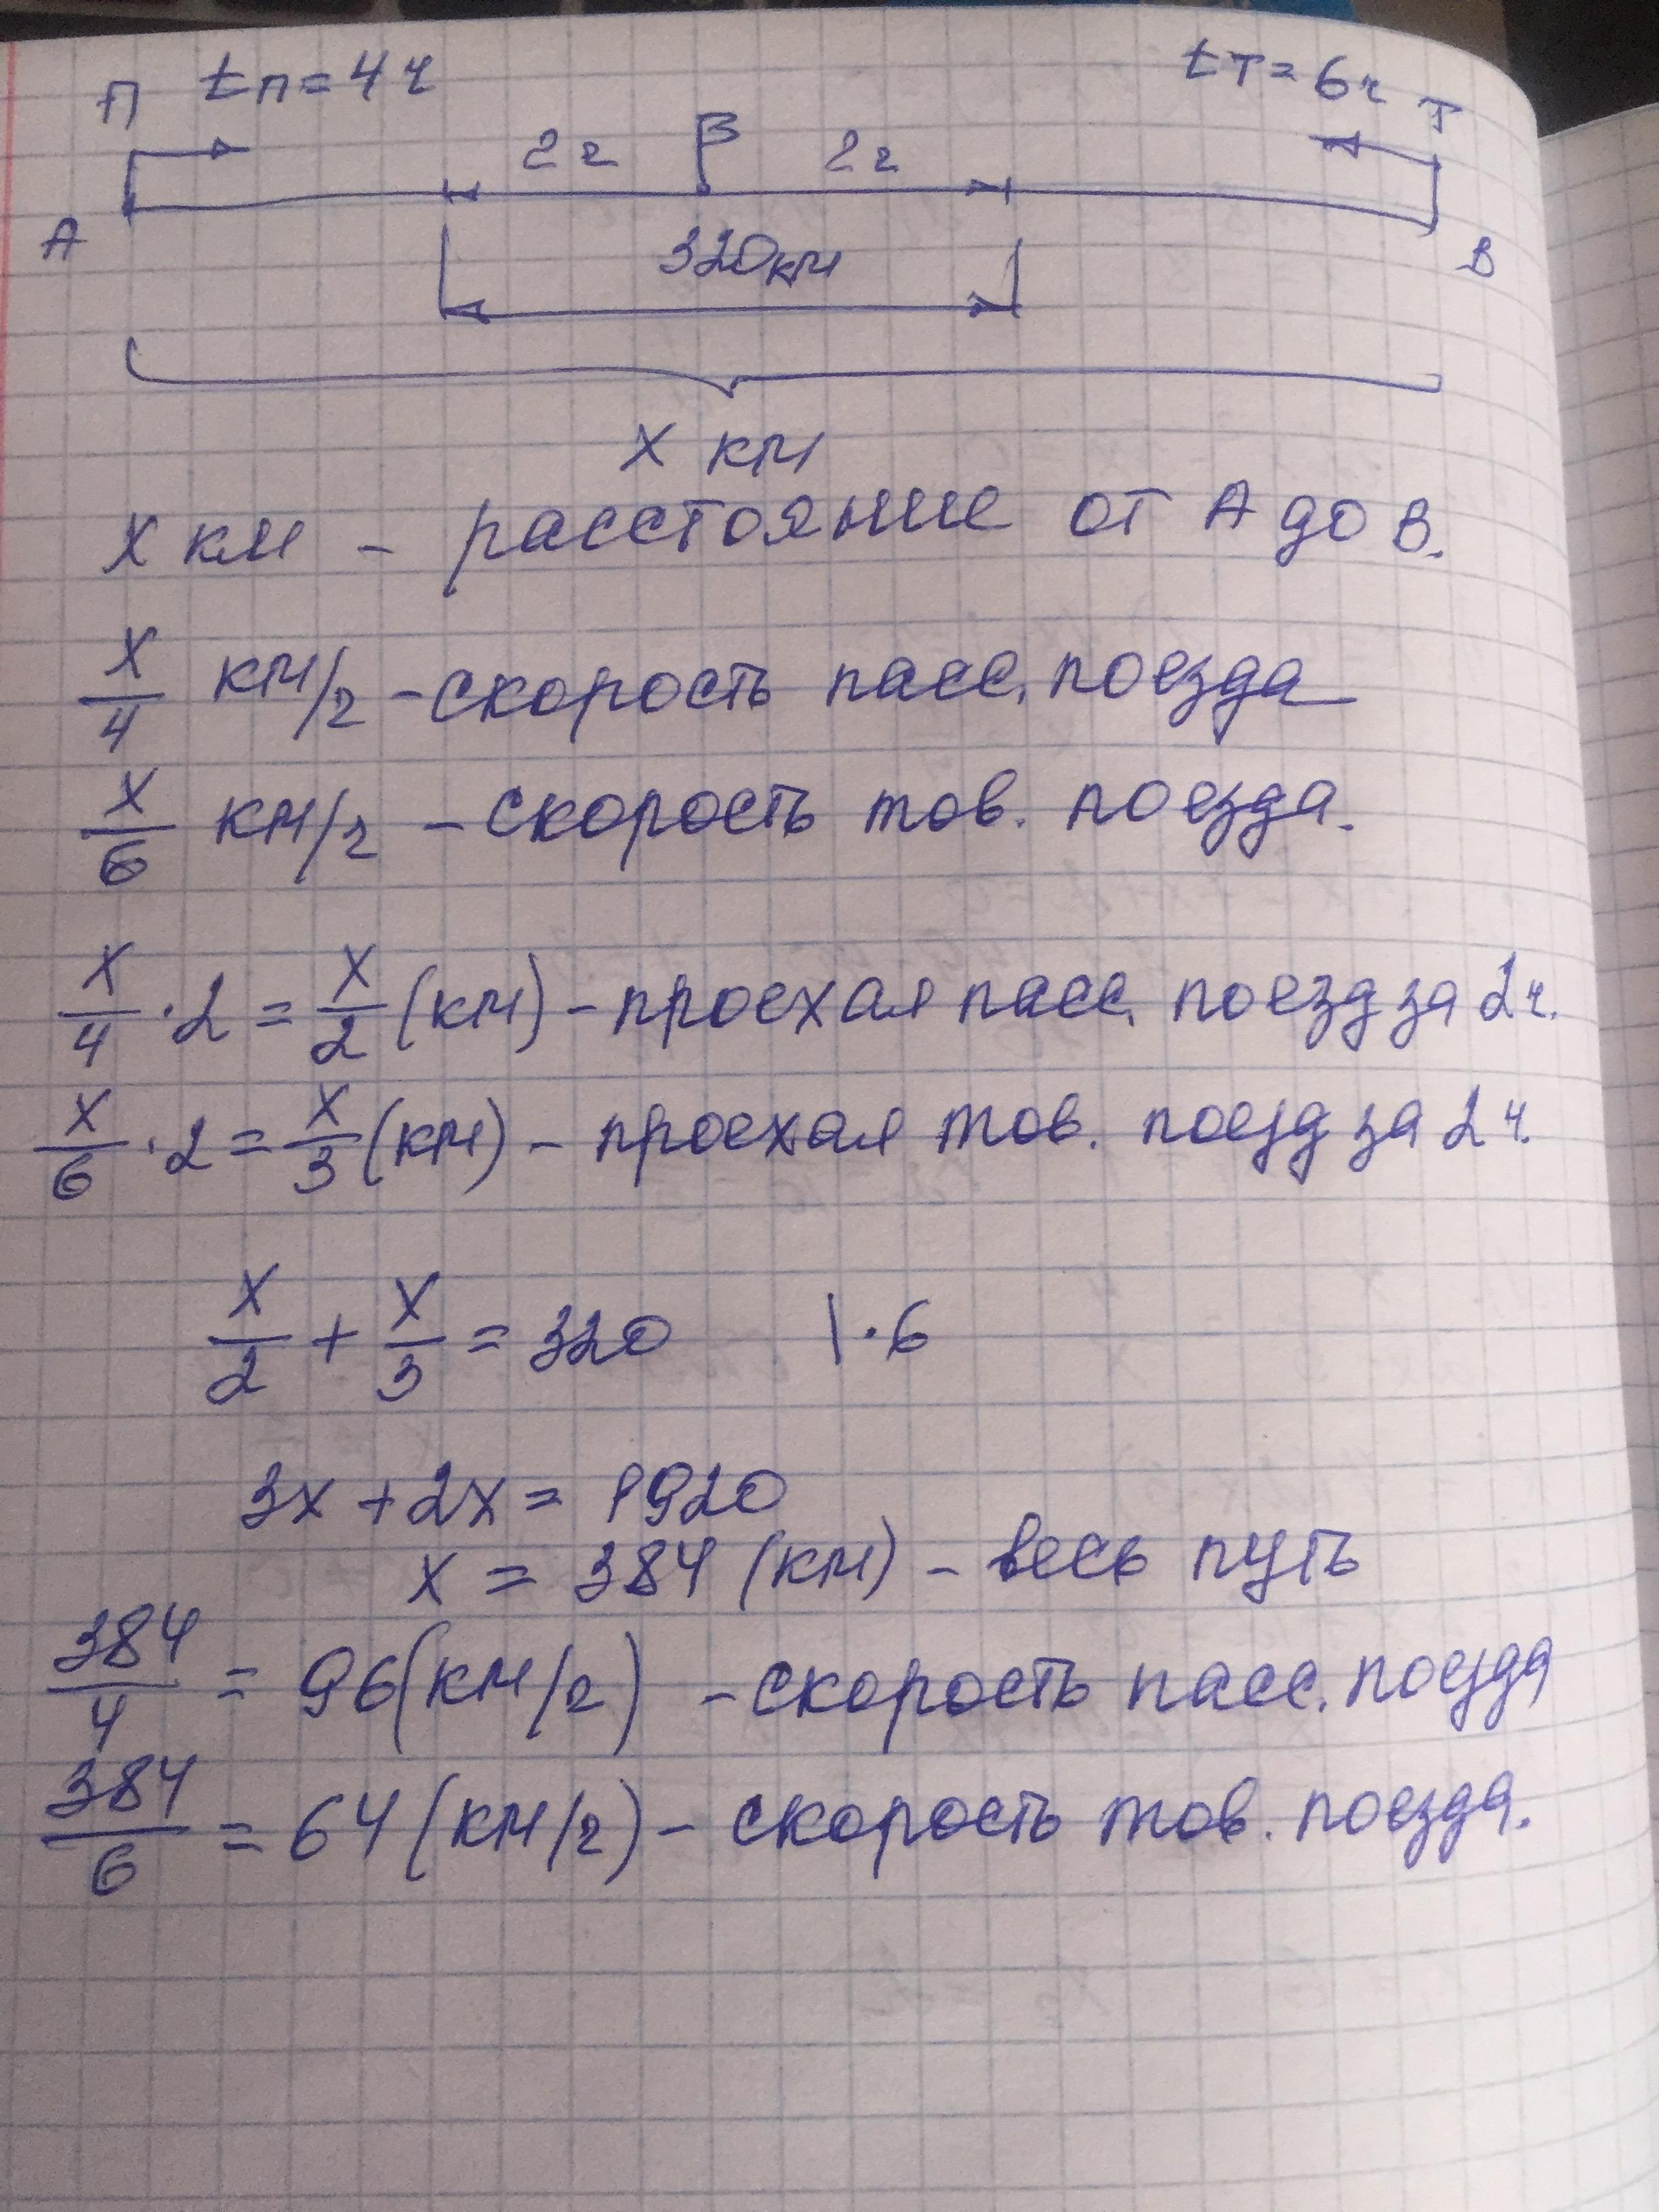 П tп = 4ч tт = 6ч Т
2ч 2ч
А 320км В
х км
х км - расстояние от А до В.
х/4 км/ч - скорость пасс. поезда
х/6 км/ч - скорость тов. поезда.
х/4 · 2 = х/2 (км) - проехал пасс. поезд за 2ч.
х/6 · 2 = х/3 (км) - проехал тов. поезд за 2ч.
х/2 + х/3 = 320 | · 6
3х + 2х = 1920
х = 384 (км) - весь путь
384/4 = 96 (км/ч) - скорость пасс. поезда
384/6 = 64 (км/ч) - скорость тов. поезда.